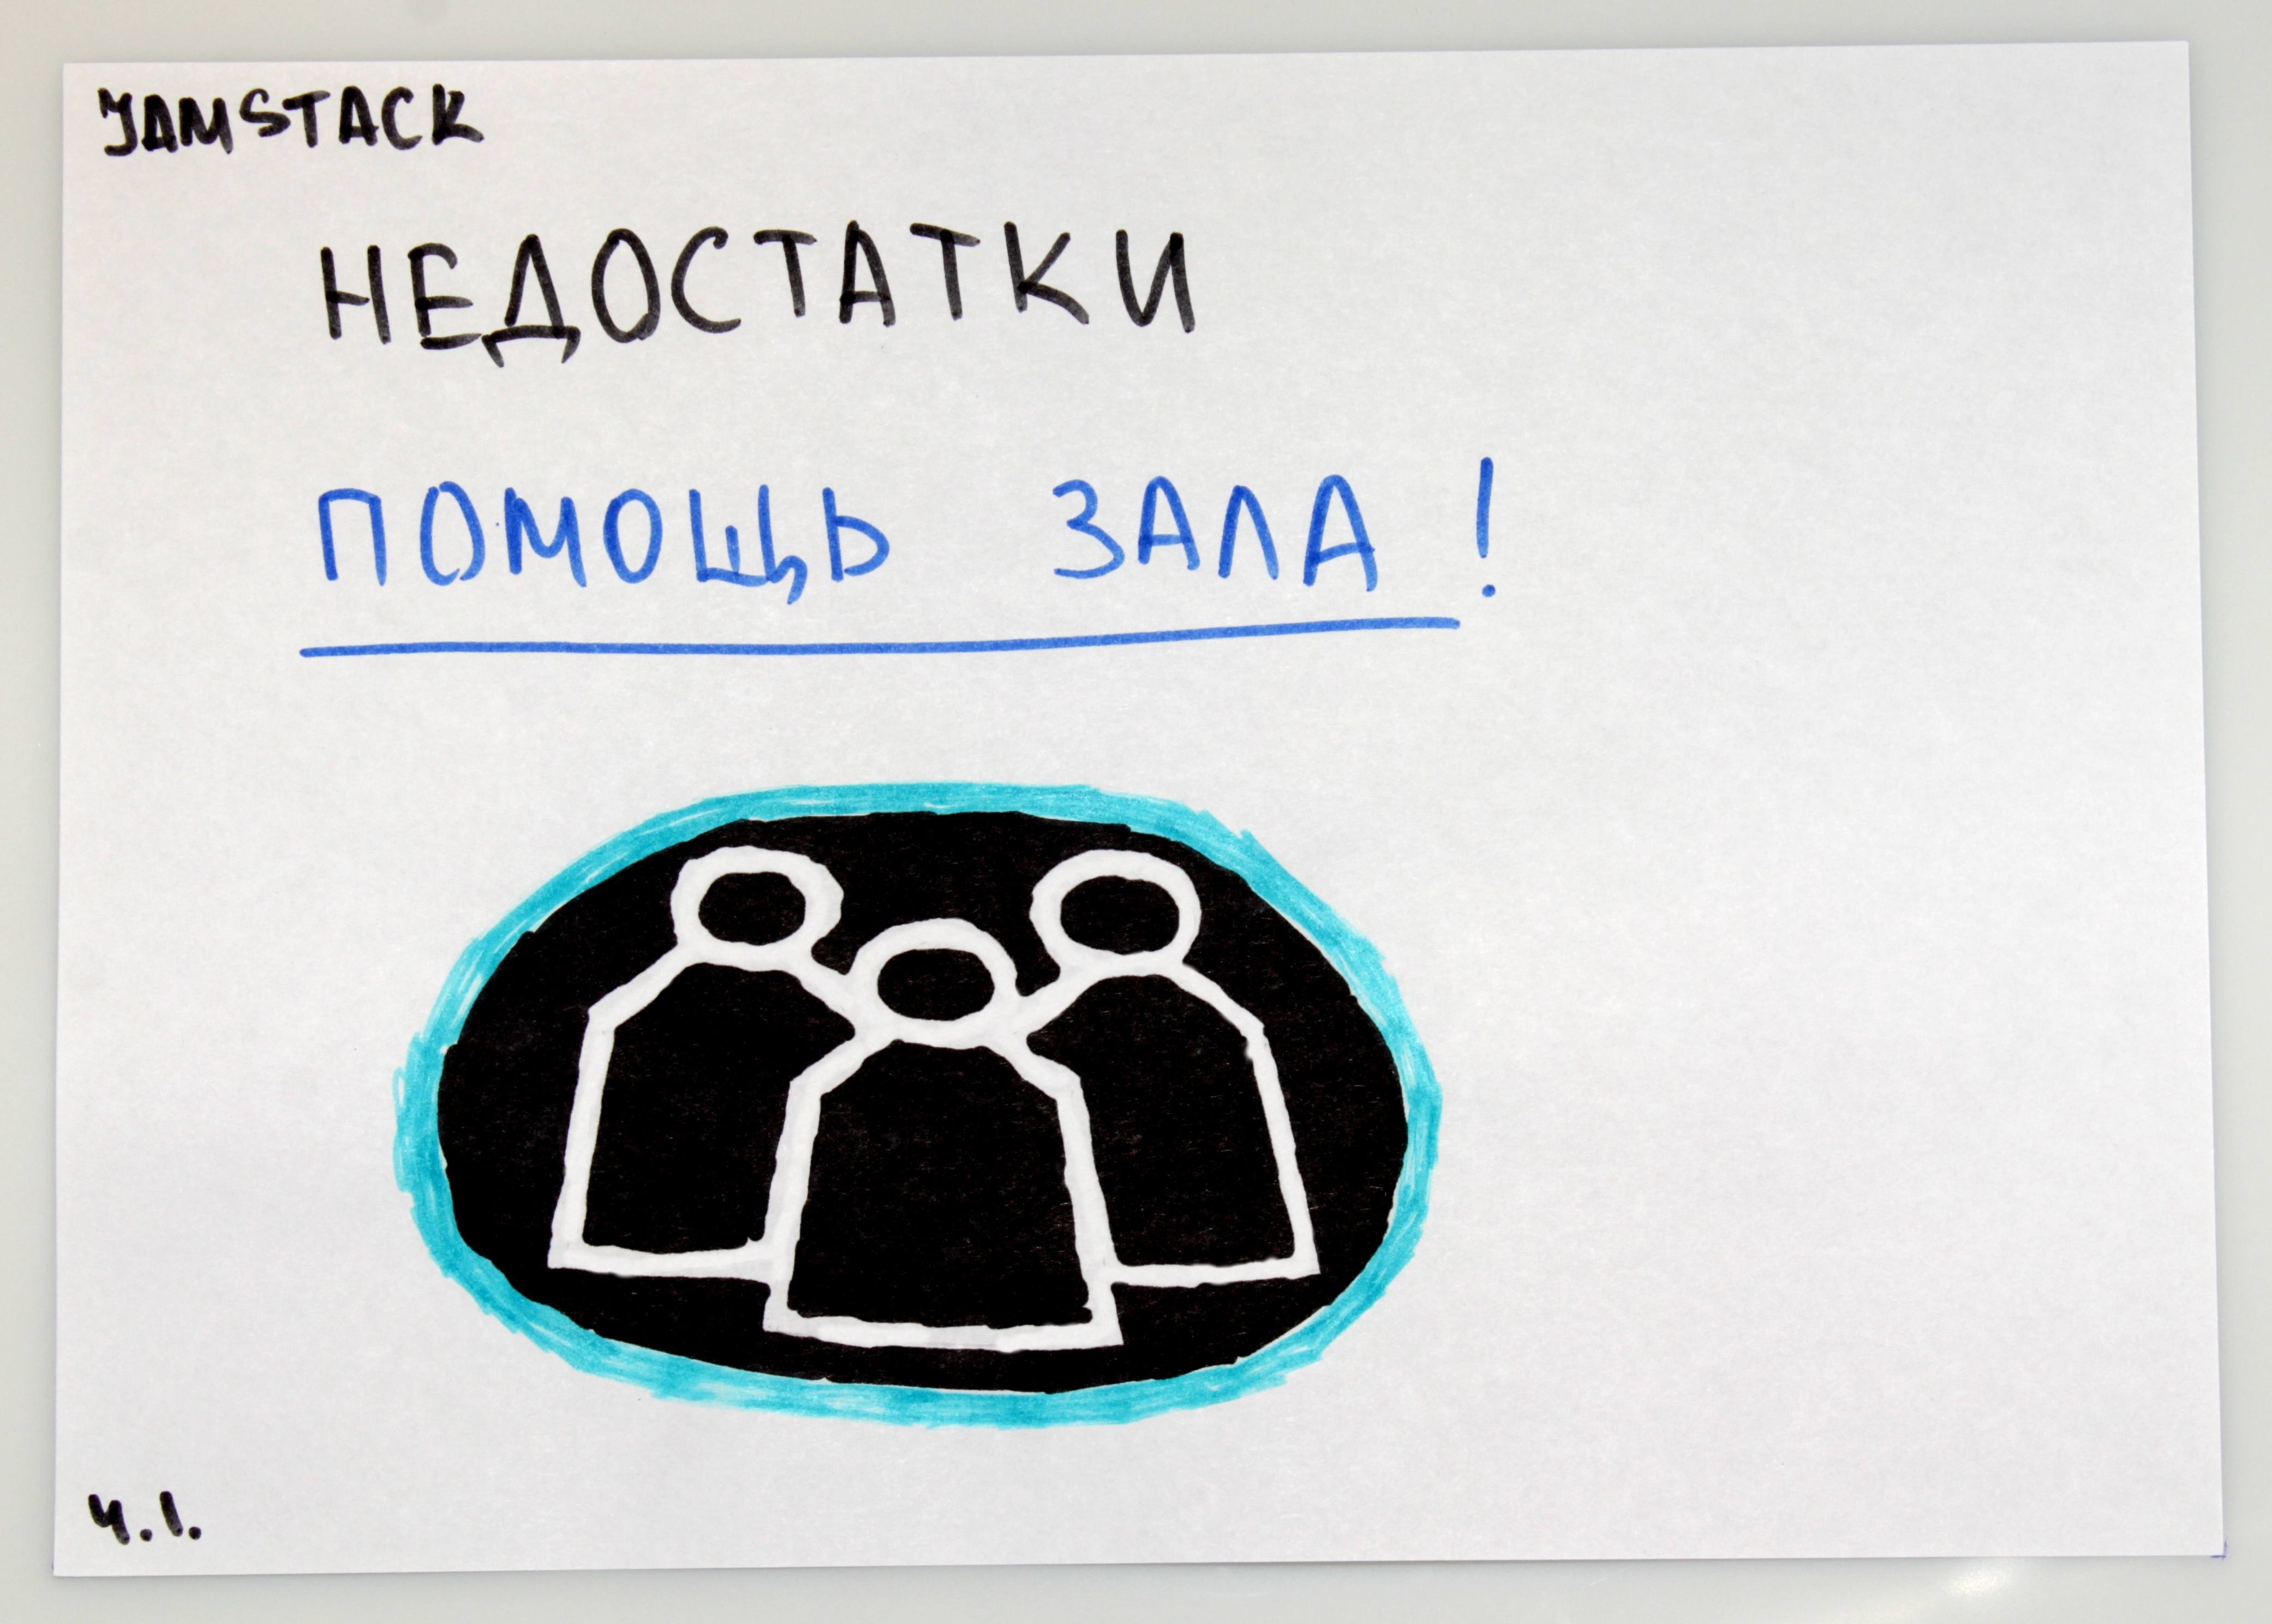 JAMSTACK
НЕДОСТАТКИ
ПОМОЩЬ ЗАЛА !
4.1.